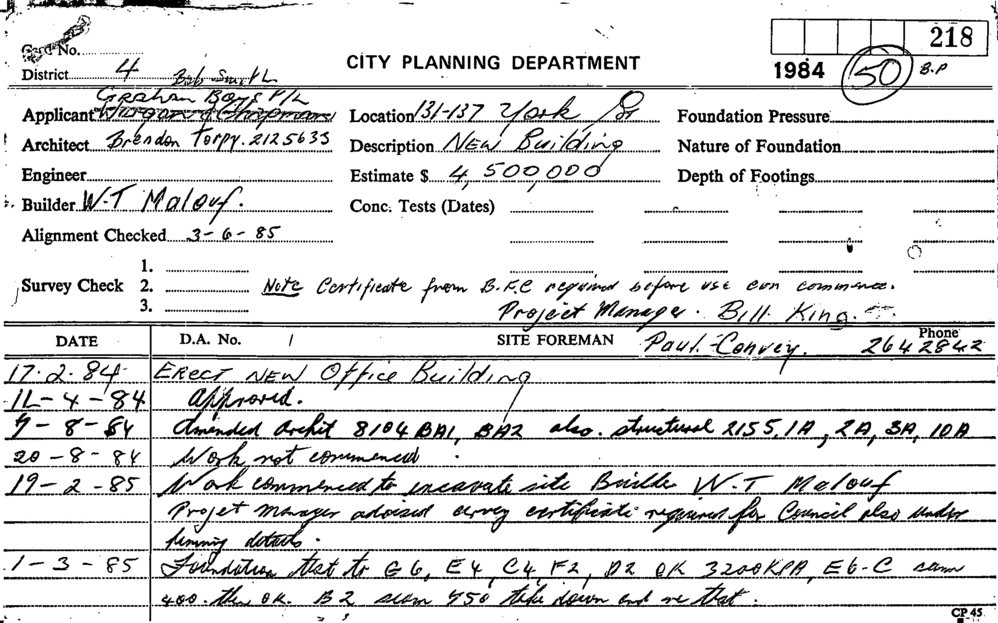 218
Card No.
CITY PLANNING DEPARTMENT
1984 50 B.P
District 4 Bob Smith
Graham Boys P/L
Applicant Location 131-137 York Foundation Pressure
Architect Brendon Torpy. 2125633 Description New Building Nature of Foundation
Engineer Estimate $ 4,500,000 Depth of Footings
Builder W.T Malouf. Conc. Tests (Dates)
Alignment Checked 3-6-85
1.
Survey Check 2. Note Certificate from B.F.C required before use can commence.
3. Project Manager. Bill King.
DATE D.A. No. SITE FOREMAN Paul Convey. Phone 2642842
17.2.84 Erect New Office Building
11-4-84 Approved.
9-8-84 Amended Archit 8104 BA1, BA2 also. structural 2155, 1A, 2A, 3A, 10A
20-8-84 Work not commenced.
19-2-85 Work commenced to excavate site Builder W.T Malouf
Projet Manager advised survey certificate required for Council also under
pinning details.
1-3-85 Foundation test to G6, E4, C4, F2, D2 OK 3200KPA, E6-C seam
400. then OK. B2 seam 450 take down and re test.
CP 45